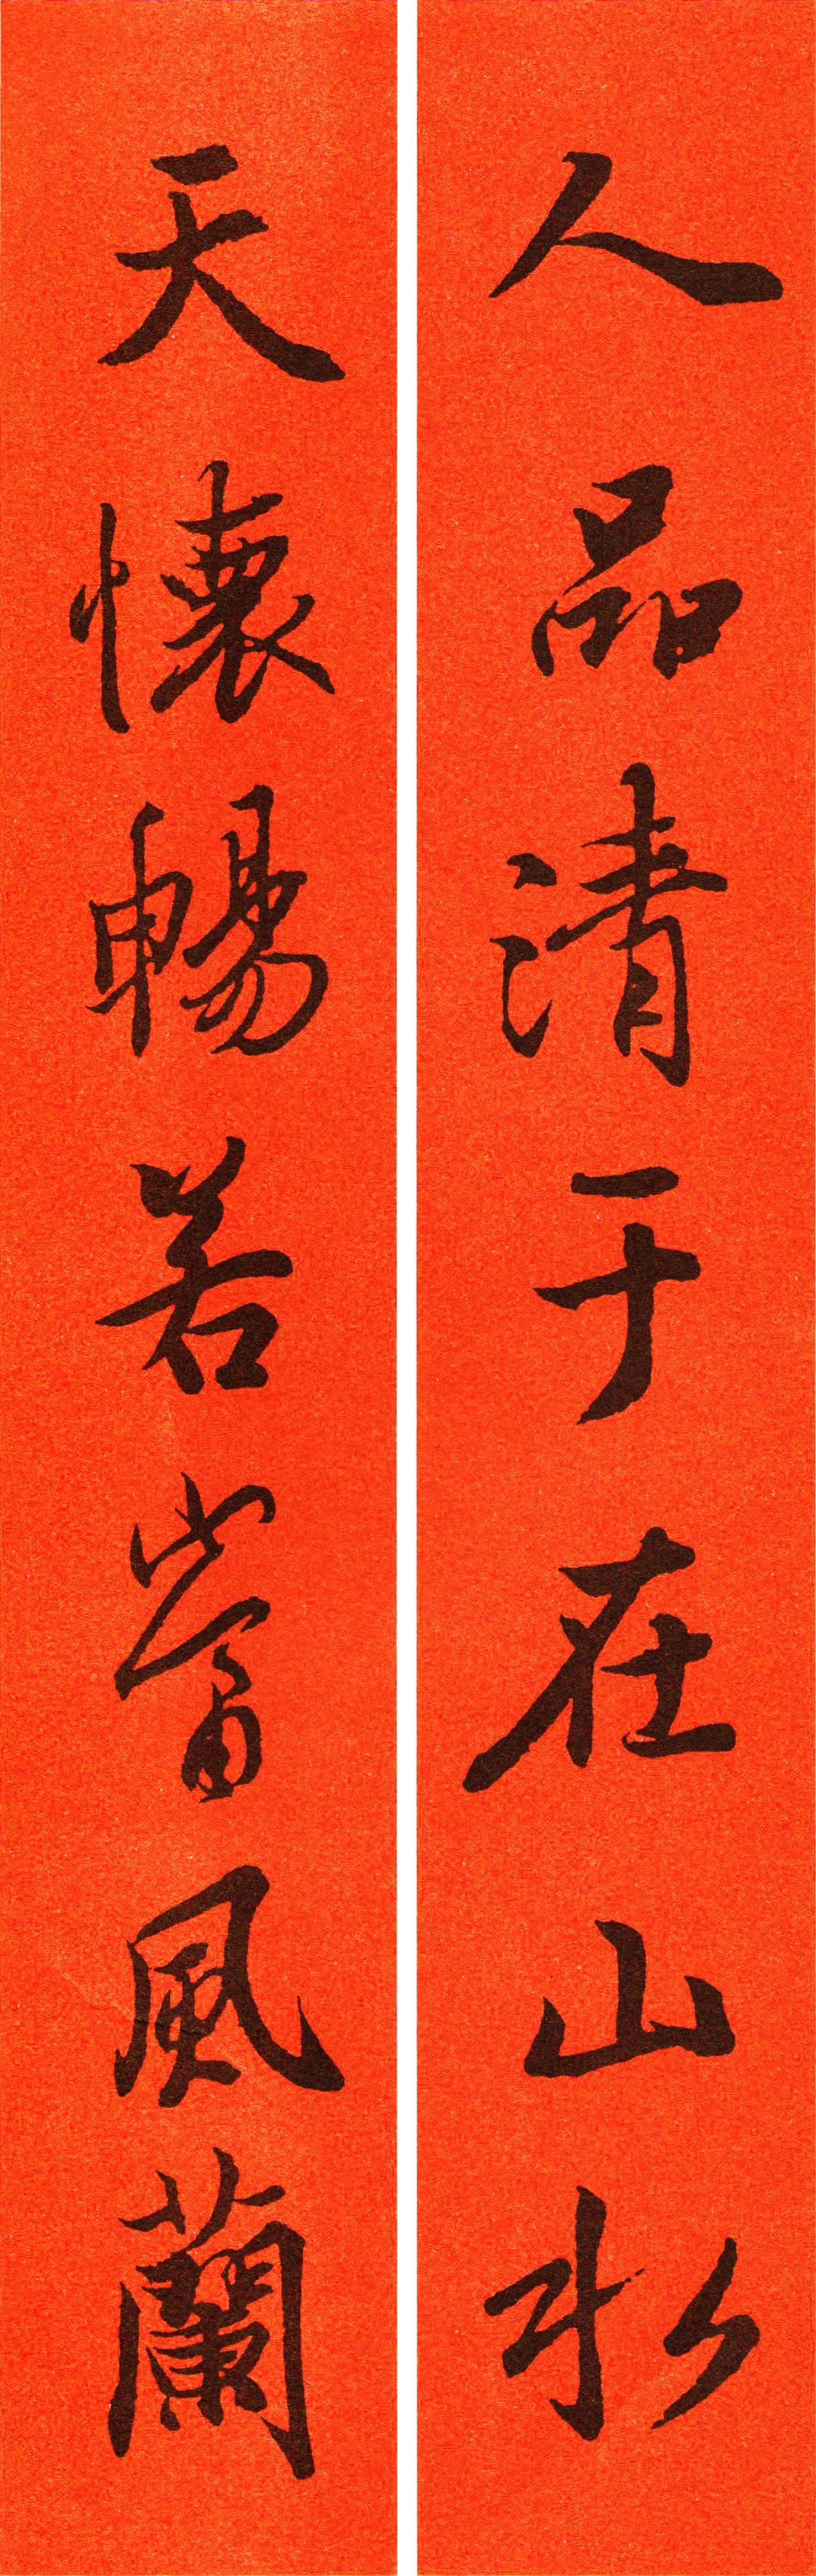 人品清于在山水
天懷暢若當風蘭